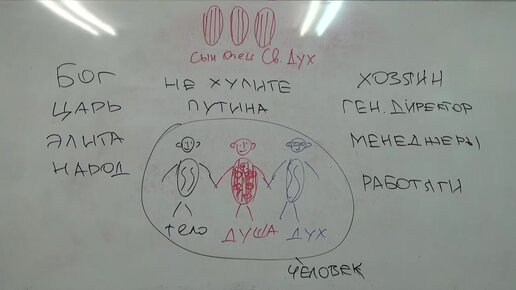 сын отец Св. Дух
БОГ
ЦАРЬ
ЭЛИТА
НАРОД
НЕ ХУЛИТЕ
ПУТИНА
ХОЗЯИН
ГЕН. ДИРЕКТОР
МЕНЕДЖЕРЫ
РАБОТЯГИ
ТЕЛО ДУША ДУХ
ЧЕЛОВЕК